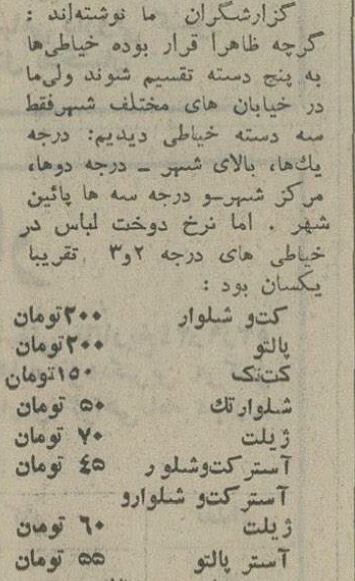 گزارشگران ما نوشته‌اند :
گرچه ظاهرا قرار بوده خیاطی‌ها
به پنج دسته تقسیم شوند ولی‌ما
در خیابان های مختلف شهرفقط
سه دسته خیاطی دیدیم: درجه
یك‌ها، بالای شهر ـ درجه دوها،
مرکز شهر-و درجه سه ها پائین
شهر . اما نرخ دوخت لباس در
خیاطی های درجه ۲و۳ تقریبا
یکسان بود :
کت‌و شلوار ۲۰۰تومان
پالتو ۲۰۰تومان
کت‌تک ۱۵۰تومان
شلوارتك ۵۰ تومان
ژیلت ۷۰ تومان
آستر کت‌وشلو ر ۴۵ تومان
آستر کت‌و شلوارو
ژیلت ۶۰ تومان
آستر پالتو ۵۵ تومان